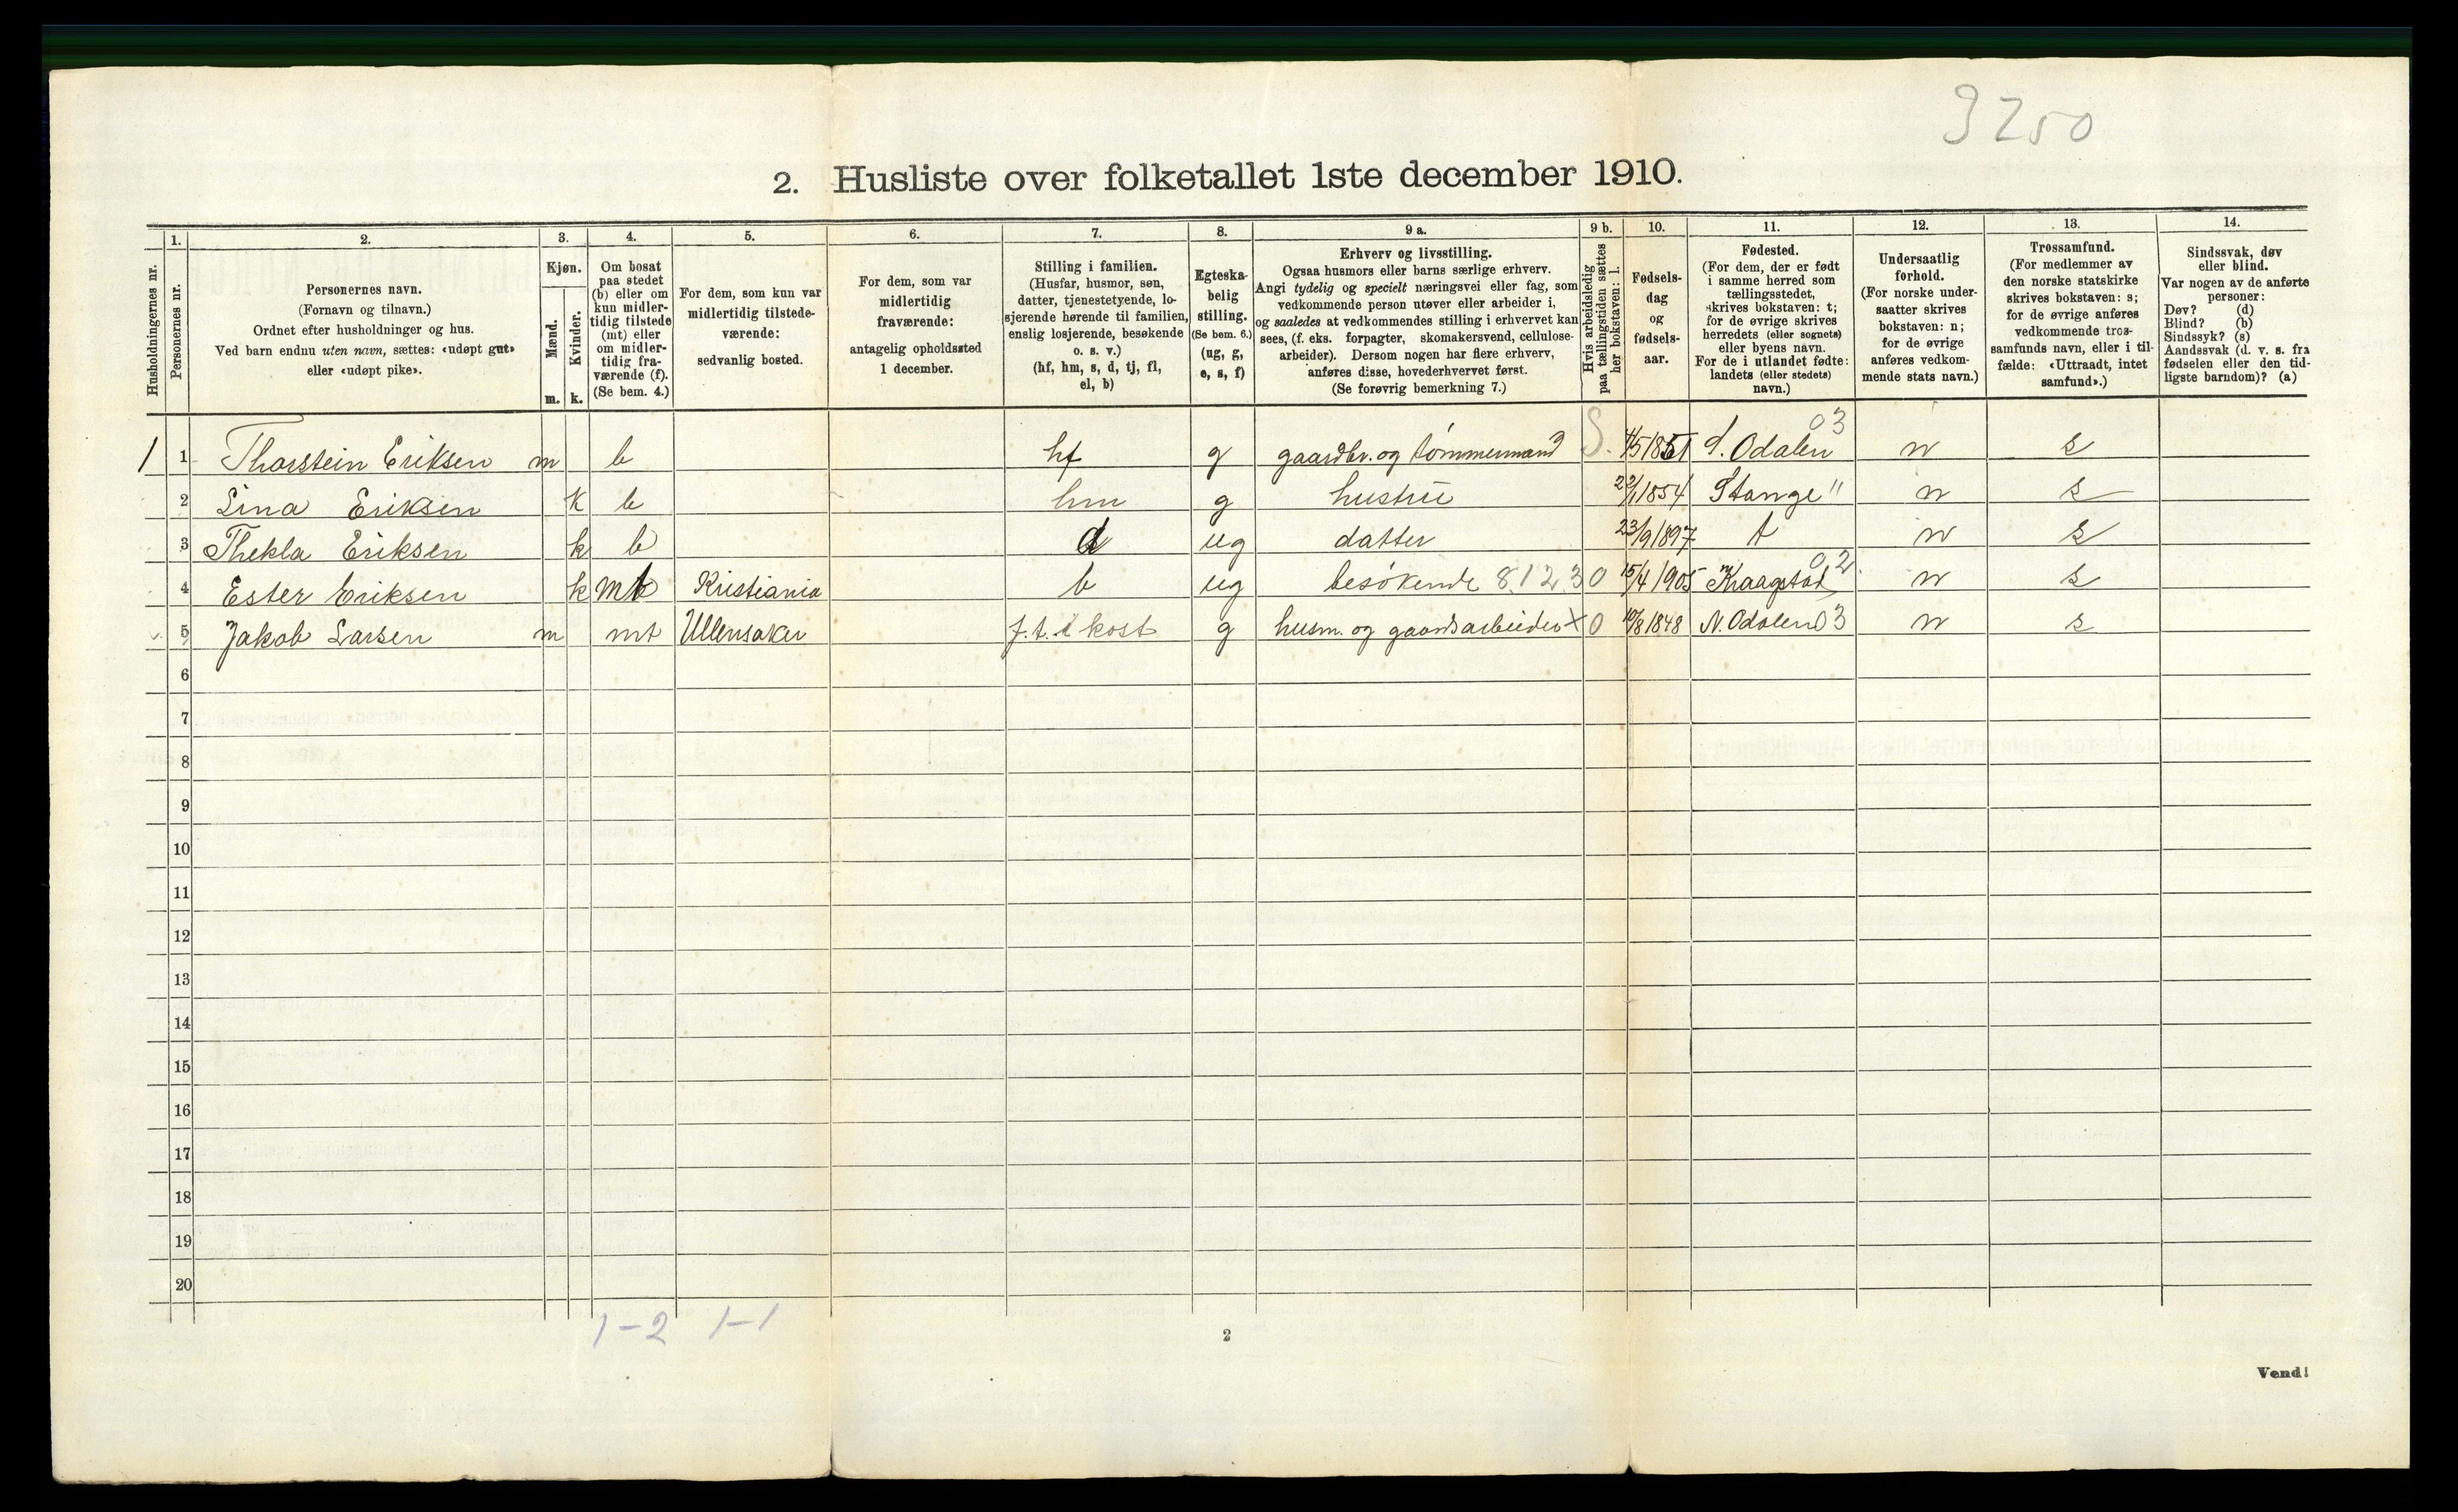 3250
2. Husliste over folketallet 1ste december 1910.
Husholdningernes nr.
1.
Personernes nr.
2.
Personernes navn.
(Fornavn og tilnavn.)
Ordnet efter husholdninger og hus.
Ved barn endnu uten navn, sættes: «udøpt gut»
eller «udøpt pike».
3.
Kjøn.
Mænd.
Kvinder.
m. k.
4.
Om bosat
paa stedet
(b) eller om
kun midler-
tidig tilstede
(mt) eller
om midler-
tidig fra-
værende (f).
(Se bem. 4.)
5.
For dem, som kun var
midlertidig tilstede-
værende:
sedvanlig bosted.
6.
For dem, som var
midlertidig
fraværende:
antagelig opholdssted
1 december.
7.
Stilling i familien.
(Husfar, husmor, søn,
datter, tjenestetyende, lo-
sjerende hørende til familien,
enslig losjerende, besøkende
o. s. v.)
(hf, hm, s, d, tj, fl,
el, b)
8.
Egteska-
belig
stilling.
(Se bem. 6.)
(ug, g,
e, s, f)
9 a.
Erhverv og livsstilling.
Ogsaa husmors eller barns særlige erhverv.
Angi tydelig og specielt næringsvei eller fag, som
vedkommende person utøver eller arbeider i,
og saaledes at vedkommendes stilling i erhvervet kan
sees, (f. eks. forpagter, skomakersvend, cellulose-
arbeider). Dersom nogen har flere erhverv,
anføres disse, hovederhvervet først.
(Se forøvrig bemerkning 7.)
9 b.
Hvis arbeidsledig
paa tællingstiden sættes
her bokstaven: l.
10.
Fødsels-
dag
og
fødsels-
aar.
11.
Fødested.
(For dem, der er født
i samme herred som
tællingsstedet,
skrives bokstaven: t;
for de øvrige skrives
herredets (eller sognets)
eller byens navn.
For de i utlandet fødte:
landets (eller stedets)
navn.)
12.
Undersaatlig
forhold.
(For norske under-
saatter skrives
bokstaven: n;
for de øvrige
anføres vedkom-
mende stats navn.)
13.
Trossamfund.
(For medlemmer av
den norske statskirke
skrives bokstaven: s;
for de øvrige anføres
vedkommende tros-
samfunds navn, eller i til-
fælde: «Uttraadt, intet
samfund».)
14.
Sindssvak, døv
eller blind.
Var nogen av de anførte
personer:
Døv? (d)
Blind? (b)
Sindssyk? (s)
Aandssvak (d. v. s. fra
fødselen eller den tid-
ligste barndom)? (a)
1 1 Thorstein Eriksen m b hf g gaardbr. og tømmermand S. 4/5 1851 S. Odalen 03 n s
2 Lina Eriksen k b hm g hustru 1854 Stange " n s
3 Thekla Eriksen k b d ug datter 23/9 1897 t n s
4 Ester Eriksen k mt Kristiania b ug besøkende 8123 0 15/4 1905 Kraagstad 02 n s
5 Jakob Larsen m mt Ullensaker f.t. i kost g husm. og gaardsarbeider X 0 10/8 1848 N. Odalen 03 n s
6
7
8
9
10
11
12
13
14
15
16
17
18
19
20
1-2 1-1
2
Vend!